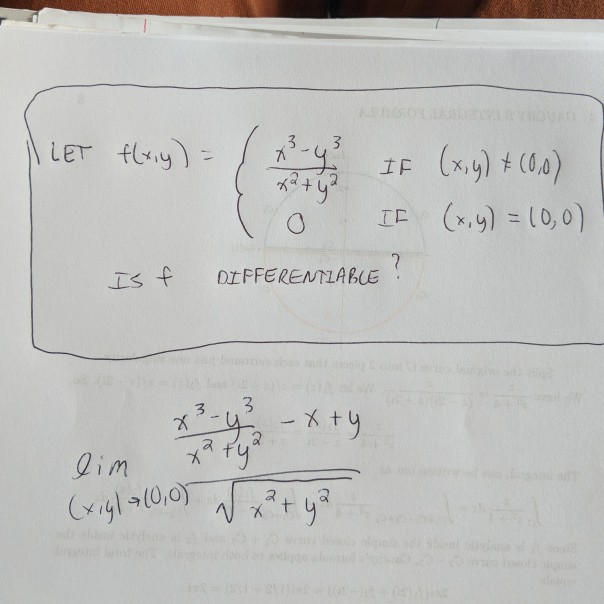 LET f(x,y) = { (x³ - y³)/(x² + y²) IF (x,y) ≠ (0,0)
0 IF (x,y) = (0,0)
IS f DIFFERENTIABLE?
lim (x,y)→(0,0) ((x³ - y³)/(x² + y²) - x + y)/√(x² + y²)